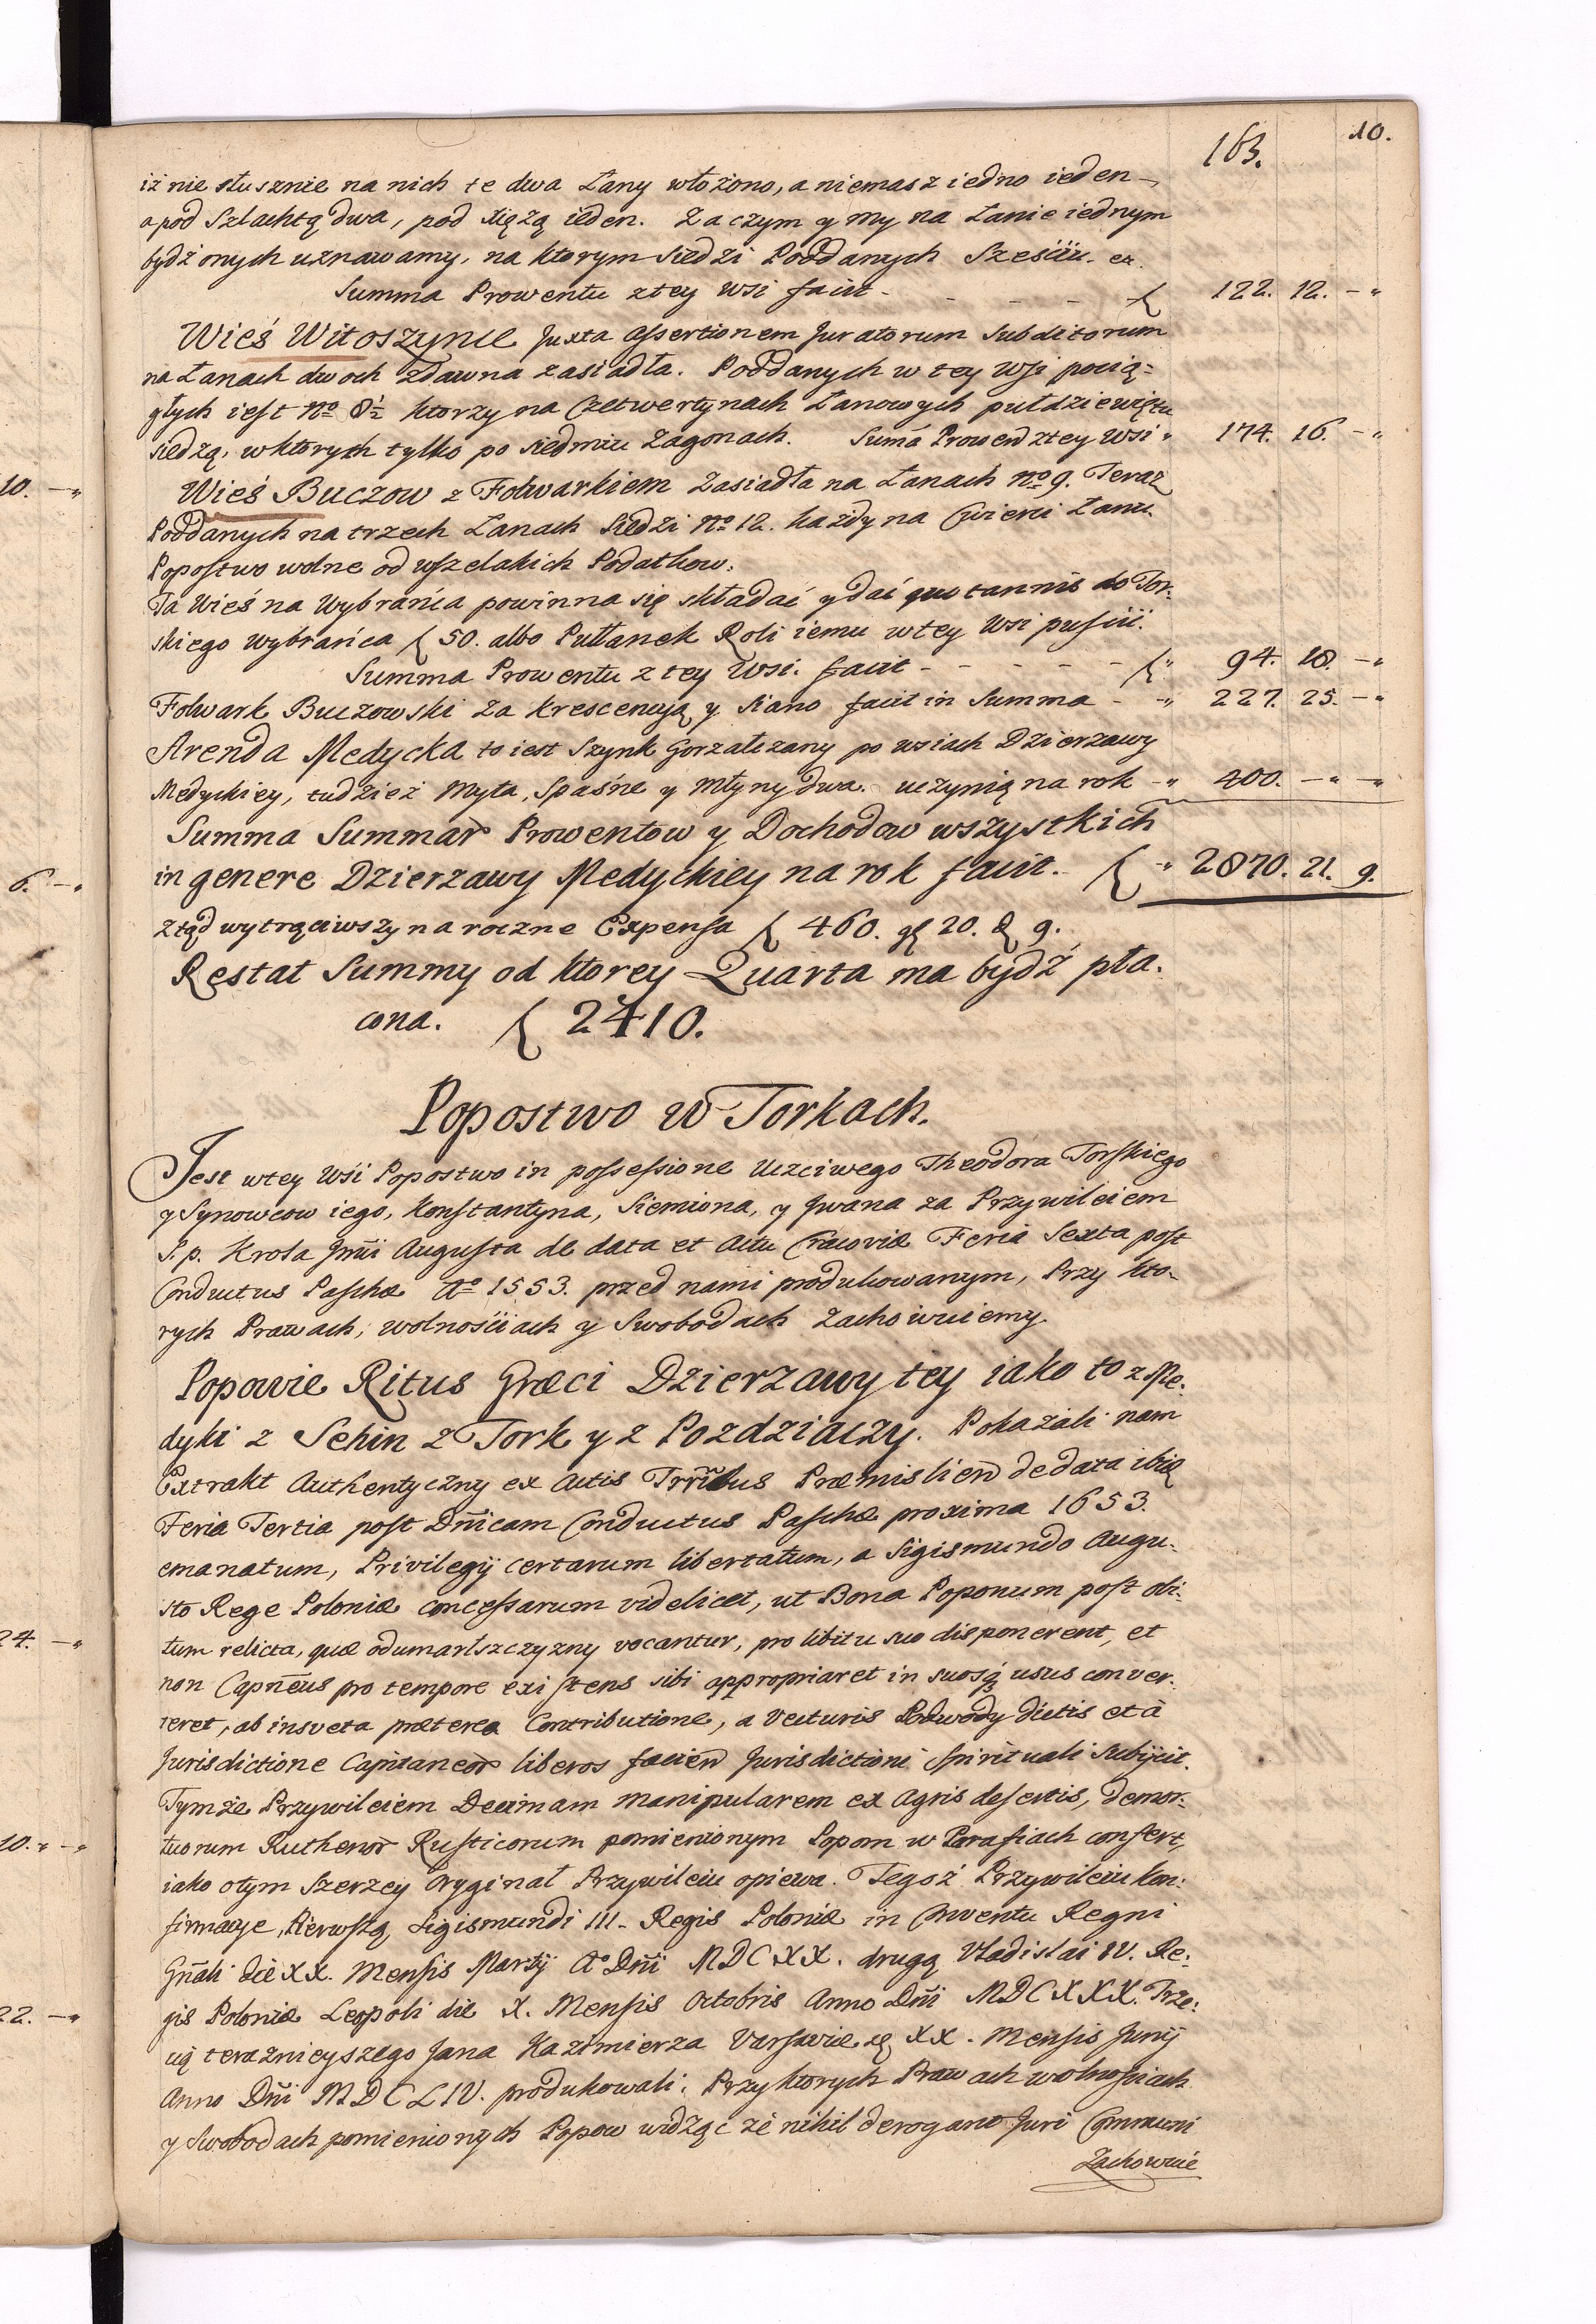 163. 10.
iż nie słusznie na nich te dwa Łany włożono, a niemasz iedno ieden
a pod Szlachtą dwa, pod Xiężą ieden. Zaczym y my na Łanie iednym
bydź onych uznawamy, na ktorym siedzi Poddanych Sześciu. er.
Summa Prowentu z tey wsi facit - - - - - ƒ 122. 12. - "
Wieś Witoszynce Juxta assertionem Juratorum Subditorum
na Łanach dwoch zdawna zasiadła. Poddanych w tey wsi pocią-
głych iest No 8½ ktorzy na Czetwertynach Łanowych pułdziewiętu
siedzą, w ktorych tylko po siedmiu Zagonach. Suma Prowen z tey wsi " 174. 16. - "
Wieś Buczow z Folwarkiem Zasiadła na Łanach No 9. Teraz
Poddanych na trzech Łanach siedzi No 12. każdy na Ćwierci Łanu.
Popostwo wolne od wszelakich Podatkow.
Ta Wieś na Wybrańca powinna się składać y dać quotannis do Tor-
skiego Wybrańca ƒ 50. albo Pułłanek Roli iemu w tey Wsi puścić.
Summa Prowentu z tey Wsi. facit - - - - - ƒ " 94. 18. - "
Folwark Buczowski za krescencyą y siano facit in Summa - " 227. 25. - "
Arenda Medycka to iest Szynk gorzałczany po wsiach Dzierzawy
Medyckiey, tudzież Myta, Spaśne y Młyny dwa. uczynią na rok - " 400. - " - "
Summa Summar Prowentow y Dochodow wszystkich
in genere Dzierzawy Medyckiey na rok facit. ƒ " 2870. 21. 9.
ztąd wytrąciwszy na roczne Expensa ƒ 460. gł 20. d 9.
Restat Summy od ktorey Quarta ma bydź pła-
cona. ƒ 2410.
Popostwo w Torkach.
Jest w tey Wsi Popostwo in possessione Uczciwego Theodora Torskiego
y Synowcow iego, Konstantyna, Siemiona, y Jwana za Przywileiem
S. p. Krola Jmci Augusta de data et Actu Cracoviæ Feria Sexta post
Conductus Paschæ Ao 1553. przed nami produkowanym, Przy kto-
rych Prawach, wolnościach y Swobodach zachowuiemy.
Popowie Ritus Græci Dzierzawy tey iako to z Me-
dyki z Sehin z Tork y z Pozdziaczy. Pokazali nam
Extrakt Authentyczny ex Actis Trribus Præmislien de data ibiq
Feria Tertia post Dnicam Conductus Paschæ proxima 1653.
emanatum, Privilegij certarum libertatum, a Sigismundo Augu-
sto Rege Poloniæ concessarum videlicet, ut Bona Poponum post obi-
tum relicta, quæ odumarłszczyzny vocantur, pro libitu suo disponerent, et
non Capneus pro tempore existens sibi appropriaret in suosq usus conver-
teret, ab insveta præterea Contributione, a Vecturis Podwody dictis et à
Jurisdictione Capitaneor liberos facien Jurisdictioni Spirituali Subijcit.
Tymże Przywileiem Decimam manipularem ex Agris desertis, demor-
tuorum Ruthenor Rusticorum pomienionym Popom w Parafiach confert,
iako o tym szerzey Oryginał Przywileiu opiewa. Tegoż Przywileiu kon-
firmacye, Pierwszą, Sigismundi III. Regis Poloniæ in Conventu Regni
Gnali die XX. Mensis Martij Ao Dni MDCXX. drugą Vladislai IV. Re-
gis Poloniæ Leopoli die X. Mensis Octobris Anno Dni MDCXXX. Trze-
cią teraznieyszego Jana Kazimierza Varsaviæ XX. Mensis Junij
Anno Dni MDCLIV. produkowali. Przy ktorych Prawach wolnościach
y Swobodach pomienionych Popow widząc że nihil derogant Juri Communi
Zachowuie
10. - "
6. - "
24. - "
10. " - "
22. - "